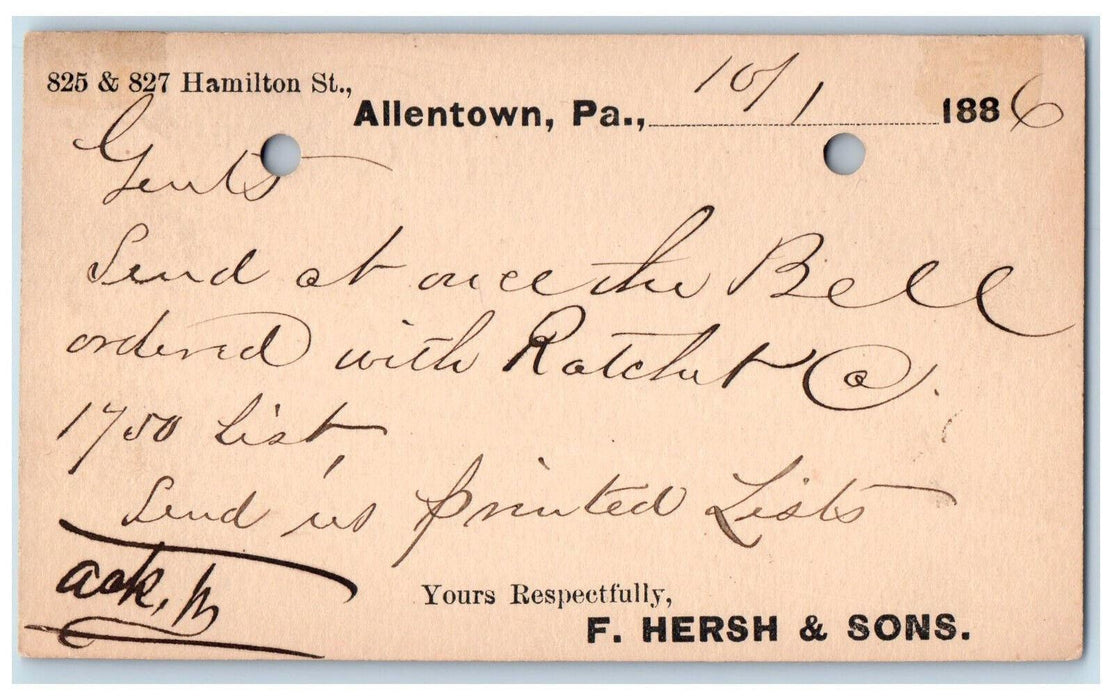 825 & 827 Hamilton St.,
Allentown, Pa., 10/1 1886
Gents
Send at once the Bell
ordered with Ratchet @
1750 List
Send us printed Lists
ack,
Yours Respectfully,
F. HERSH & SONS.